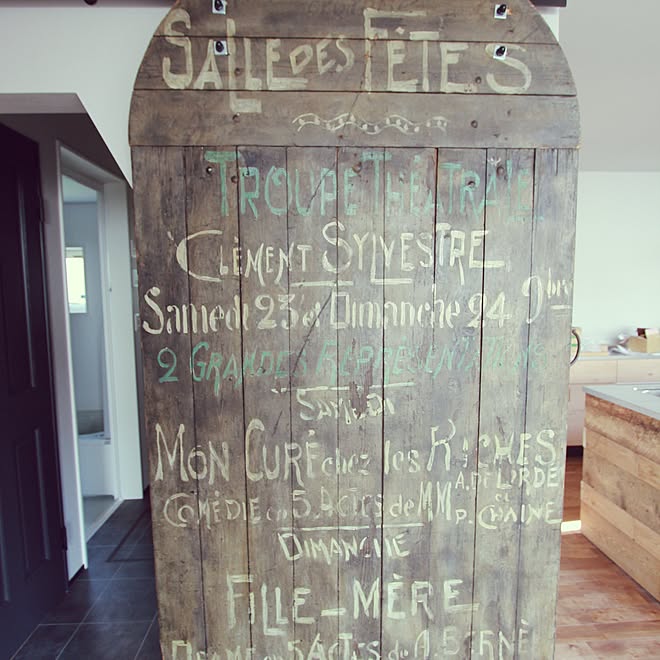 SALLE DES FÊTES
TROUPE THÉÂTRALE
"CLÉMENT SYLVESTRE"
Samedi 23 et Dimanche 24 9bre
2 GRANDES REPRÉSENTATIONS
SAMEDI
MON CURÉ chez les RICHES
COMÉDIE en 5 ACTES de MM A. DE LORDE et P. CHAINE
DIMANCHE
FILLE-MÈRE
DRAME en 5 ACTES de A. BERNÈDE